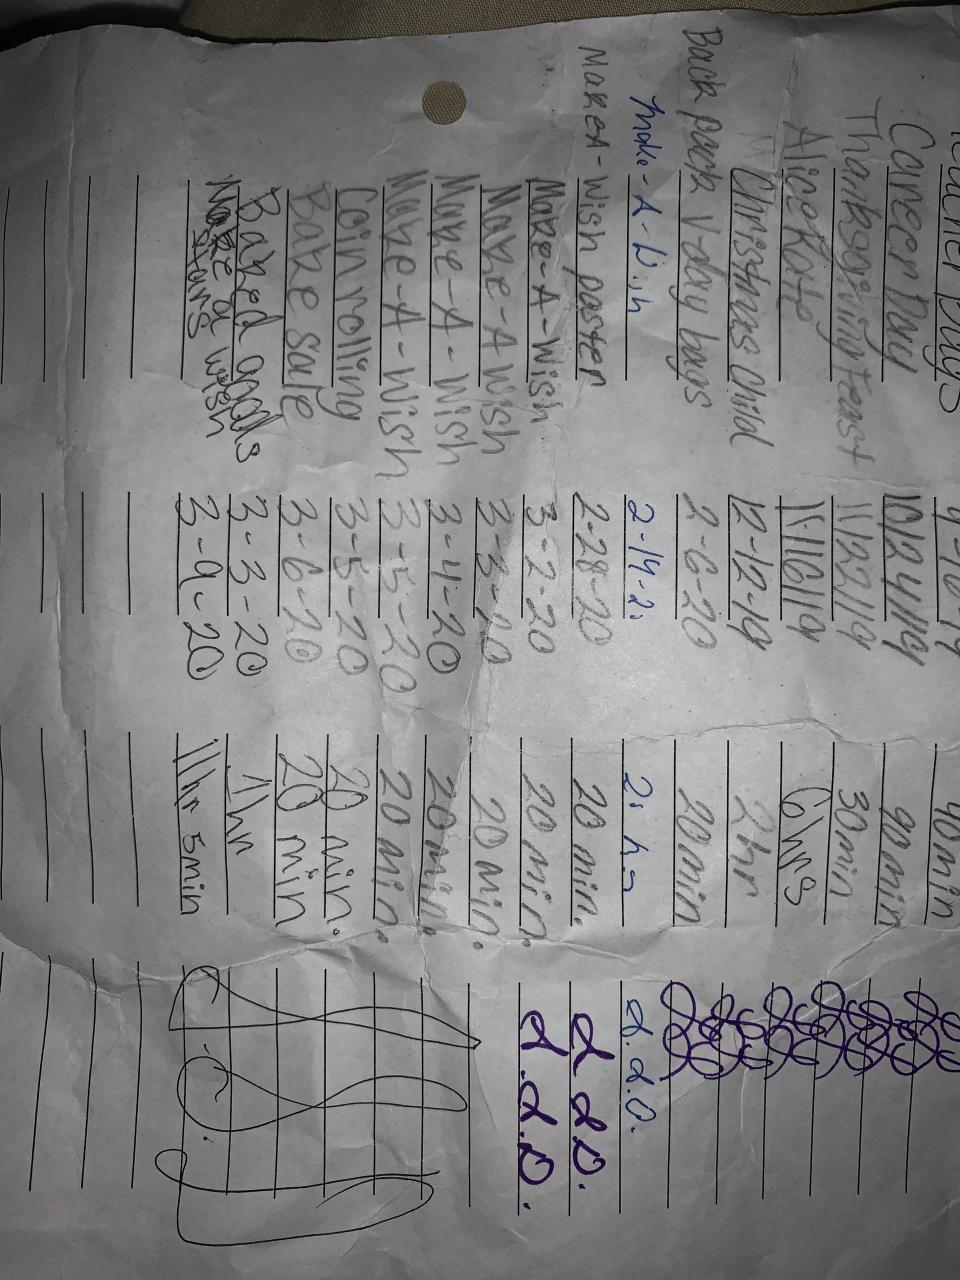 Career Day 10/24/19 90 min
Thanksgiving Feast 11/22/19 30 min
Alice Kate 11/16/19 6 hrs
Christmas Child 12-12-19 2 hr
Back pack V-day bags 2-6-20 20 min
Make-A-Wish 2-14-2 2 h d.d.O.
Make A-Wish poster 2-28-20 20 min. d d D.
Make-A-Wish 3-2-20 20 min. d.d.D.
Make-A Wish 3-3-20 20 min.
Make-A-Wish 3-4-20 20 min.
Make-A-Wish 3-5-20 20 min.
Coin rolling 3-5-20 20 min.
Bake sale 3-6-20 20 min
Baked goods 3-3-20 1 hr
Make a wish stars 3-9-20 1 hr 5 min